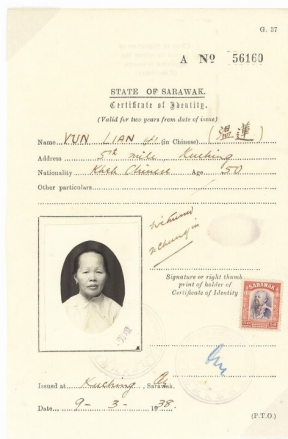 G. 37
A No 56160
STATE OF SARAWAK.
Certificate of Identity.
(Valid for two years from date of issue)
Name YUN LIAN (in Chinese) (溫蓮)
Address 5th mile Kuching
Nationality Kheh Chinese Age 50
Other particulars
Witness
Signature or right thumb
print of holder of
Certificate of Identity
SARAWAK
Issued at Kuching, Sarawak.
Date 9-3-1938.
(P.T.O.)